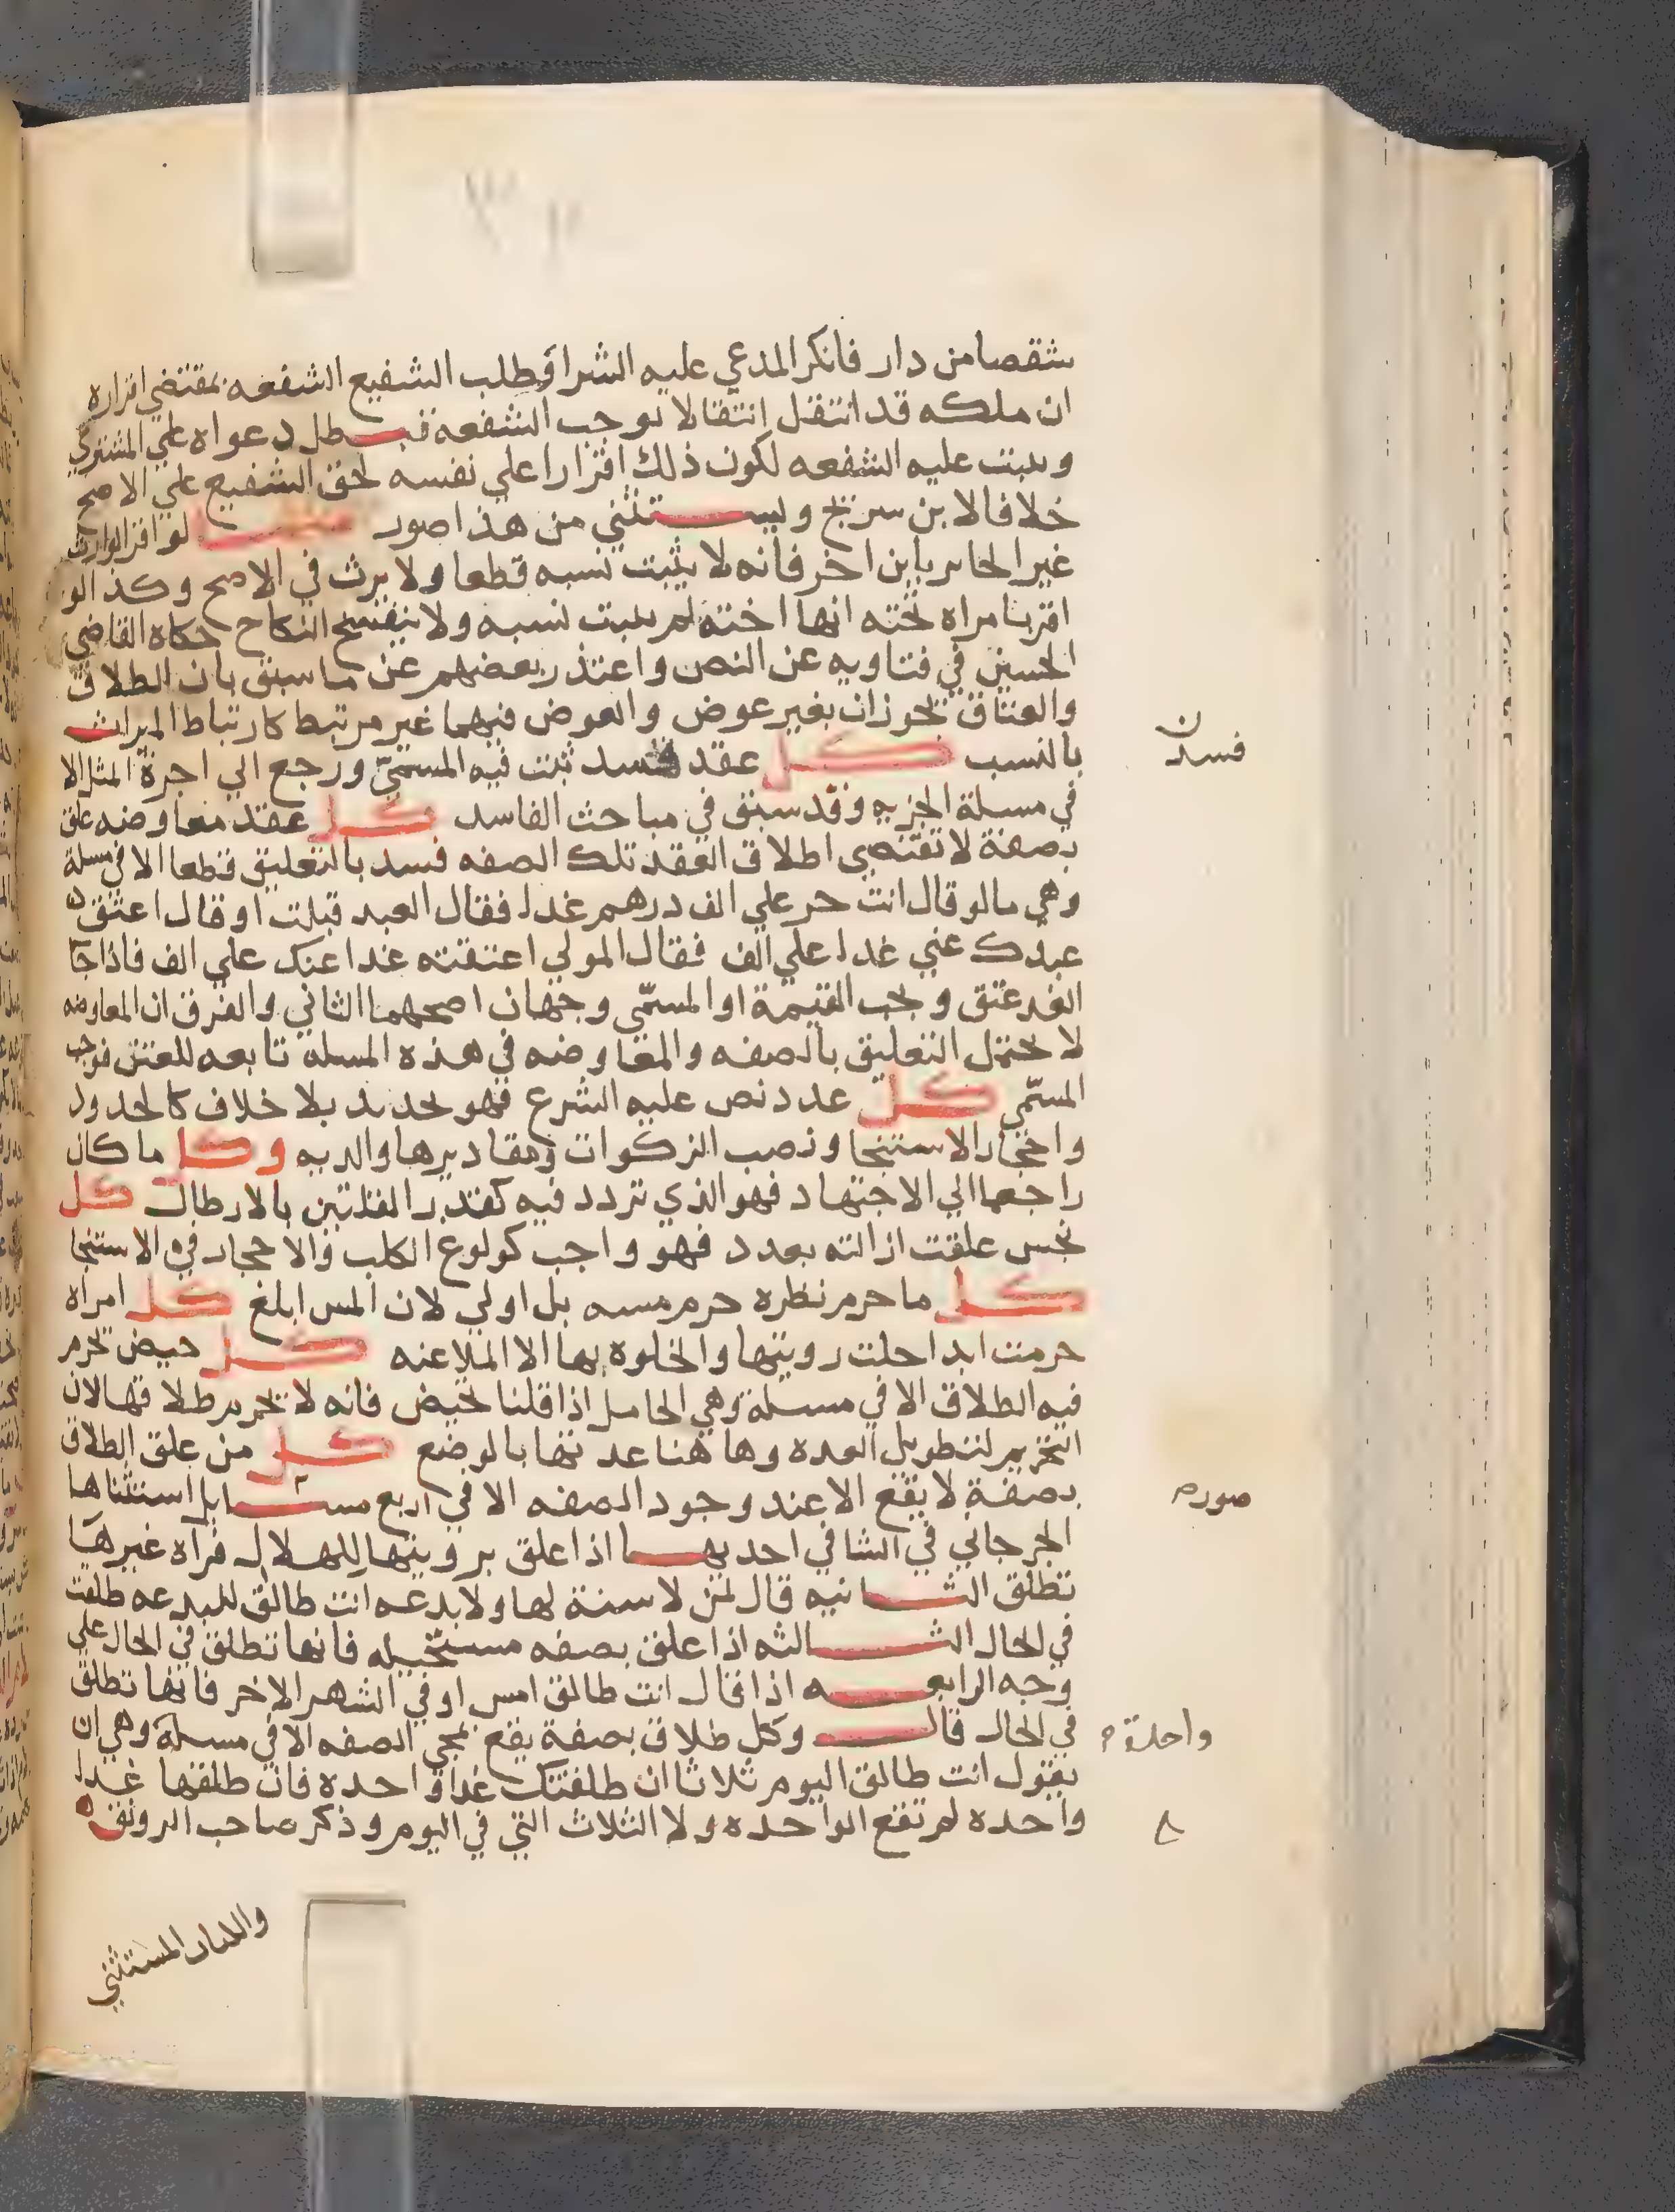 شقصا من دار فانكر المدعي عليه الشرا وطلب الشفيع الشفعه بمقتضي اقراره
ان ملكه قد انتقل انتقالا يوجب الشفعه فبطل دعواه علي المشتري
ويثبت عليه الشفعه لكون ذلك اقرارا علي نفسه لحق الشفيع علي الاصح
خلافا لابن سريج ويستثني من هذا صور منها لو اقر الوارث
غير الحاىر بابن اخر فانه لا يثبت نسبه قطعا ولا يرث في الاصح وكذا لو
اقر بامراه تحته انها اخته لم يثبت نسبه ولا ينفسخ النكاح حكاه القاضي
الحسين في فتاويه عن النص واعتذر بعضهم عن ما سبق بان الطلاق
والعتاق يجوزان بغير عوض والعوض فيهما غير مرتبط كارتباط الميراث
بالنسب كل عقد فسد ثبت فيه المسمي ورجع الي اجرة المثل الا
فسدن
في مسلة الجزيه وقد سبق في مباحث الفاسد كل عقد معاوضه علق
بصفة لا تقتضي اطلاق العقد تلك الصفه فسد بالتعليق قطعا الا في مسلة
وهي ما لو قال انت حر علي الف درهم غدا فقال العبد قبلت او قال اعتق
عبدك عني غدا علي الف فقال المولي اعتقته غدا عنك علي الف فاذا جا
الغد عتق ويجب القيمة او المسمّي وجهان اصحهما الثاني والفرق ان المعاوضه
لا تحتمل التعليق بالصفه والمعاوضه في هذه المسله تابعه للعتق فوجب
المسمّي كل عدد نص عليه الشرع فهو تحديد بلا خلاف كالحدود
واحجار الاستنجا ونصب الزكوات ومقاديرها والديه وكل ما كان
راجعا الي الاجتهاد فهو الذي تردد فيه كتقدير القلتين بالارطال كل
نجس علقت ازالته بعدد فهو واجب كولوغ الكلب والاحجار في الاستنجا
كل ما حرم نظره حرم مسه بل اولي لان المس ابلغ كل امراه
حرمت ابدا حلت رويتها والخلوه بها الا الملاعنه كل حيض يحرم
فيه الطلاق الا في مسلة وهي الحامل اذا قلنا تحيض فانه لا يحرم طلاقها لان
التحريم لتطويل العده وها هنا عدتها بالوضع كل من علق الطلاق
بصفة لا يقع الا عند وجود الصفه الا في اربع مسايل استثناها
صوره
الجرجاني في الشافي احديها اذا علق برويتها للهلال فراه غيرها
تطلق الثانيه قال لمن لا سنة لها ولا بدعه انت طالق للبدعه طلقت
في الحال الثالثه اذا علق بصفه مستحيله فانها تطلق في الحال علي
وجه الرابعه اذا قال انت طالق امس او في الشهر الاخر فانها تطلق
في الحال قال وكل طلاق بصفة يقع بمجي الصفه الا في مسلة وهي ان
واحدة
يقول انت طالق اليوم ثلاثا ان طلقتك غدا واحده فان طلقها غدا
واحده لم تقع الواحده ولا الثلاث التي في اليوم وذكر صاحب الرونق
المستثني